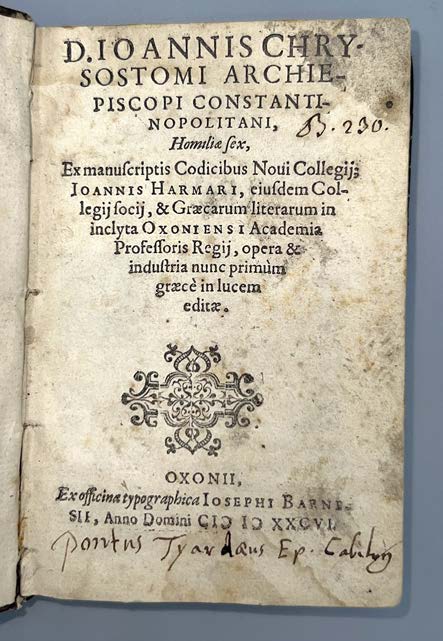 D. IOANNIS CHRY-
SOSTOMI ARCHIE-
PISCOPI CONSTANTI-
NOPOLITANI,
B. 230.
Homiliæ ſex,
Ex manuſcriptis Codicibus Noui Collegij;
IOANNIS HARMARI, eiuſdem Col-
legij ſocij, & Græcarum literarum in
inclyta OXONIENSI Academia
Profeſſoris Regij, opera &
induſtria nunc primùm
græcè in lucem
editæ.
OXONII,
Ex officina typographica IOSEPHI BARNE-
SII, Anno Domini CIↃ IↃ XXCVI.
Pontus Tyardæus Ep. Cabilon